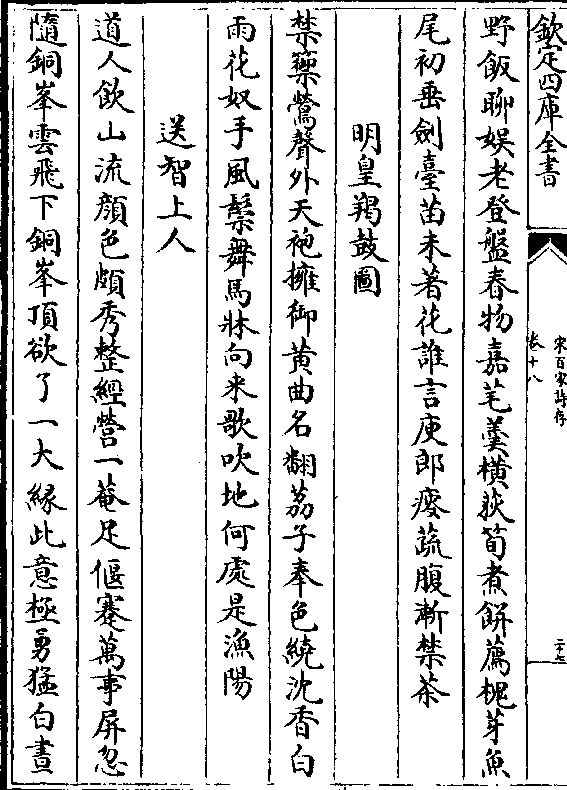 欽定四庫全書
宋百家詩存
卷十八
二十七
野飯聊娱老登盤春物嘉芼羮横荻筍煮餅薦槐芽魚
尾初垂劍臺苗未著花誰言庾郎瘦蔬腹漸禁茶
明皇羯鼓圖
禁籞鶯聲外天袍擁御黄曲名翻荔子奉色繞沈香白
雨花奴手風鬃舞馬牀向来歌吹地何處是漁陽
送智上人
道人飲山流顔色頗秀整經營一菴足偃蹇萬事屏忽
隨銅峯雲飛下銅峯頂欲了一大緣此意極勇猛白晝